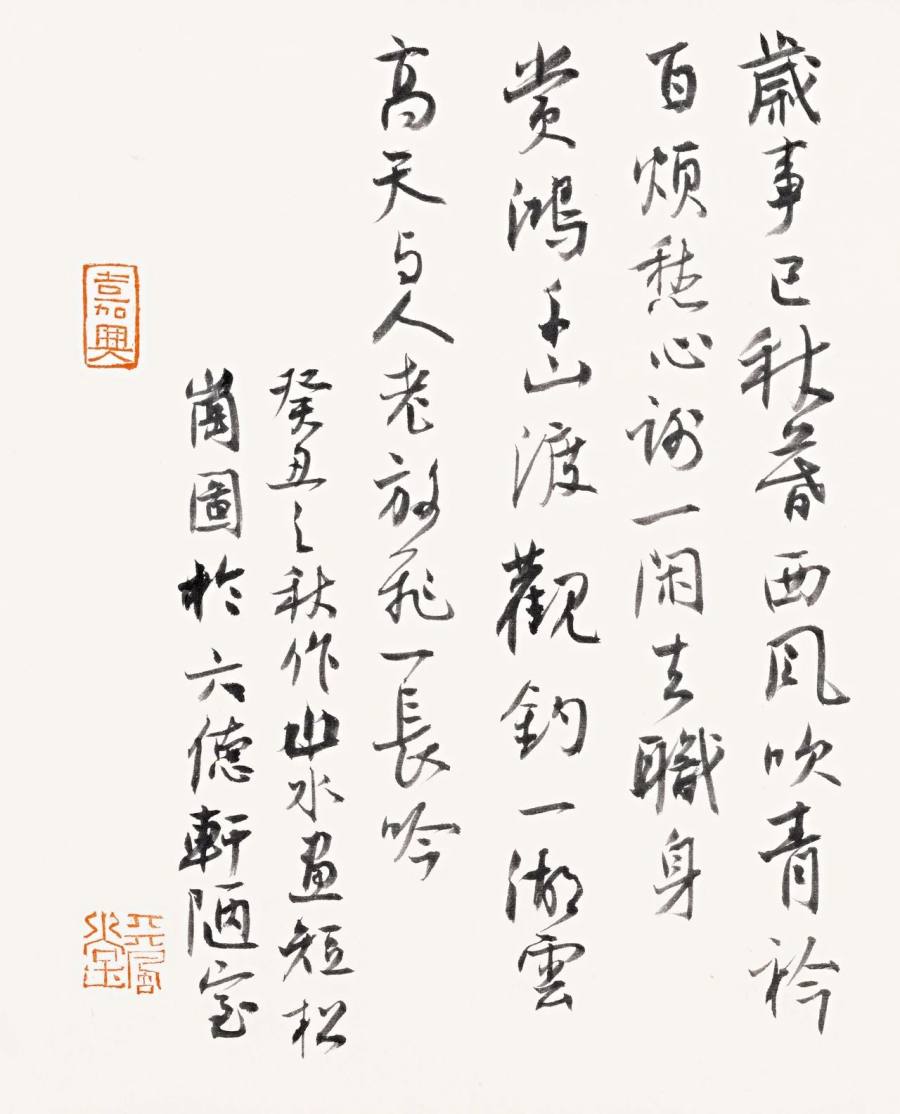 歲事已秋暮西风吹青衿
百煩愁心謝一閑去職身
赏鴻千山渡觀釣一湖雲
高天与人老放飛一長吟
癸丑之秋作山水画短松
崗圖於六德軒陋室
吉嘉興